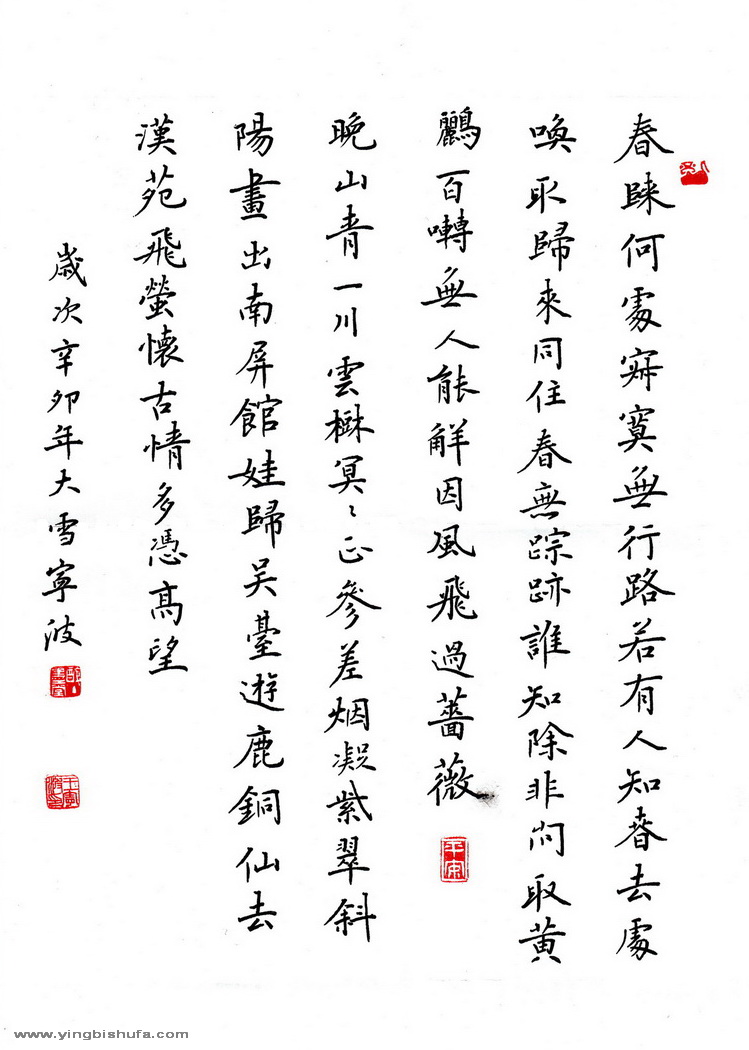 春歸何處寂寞無行路若有人知春去處
喚取歸來同住春無踪跡誰知除非問取黃
鸝百囀無人能解因風飛過薔薇
晚山青一川雲樹冥〻正參差烟凝紫翠斜
陽畫出南屏館娃歸吴臺遊鹿銅仙去
漢苑飛螢懷古情多憑高望
歲次辛卯年大雪寧波
平安
www.yingbishufa.com